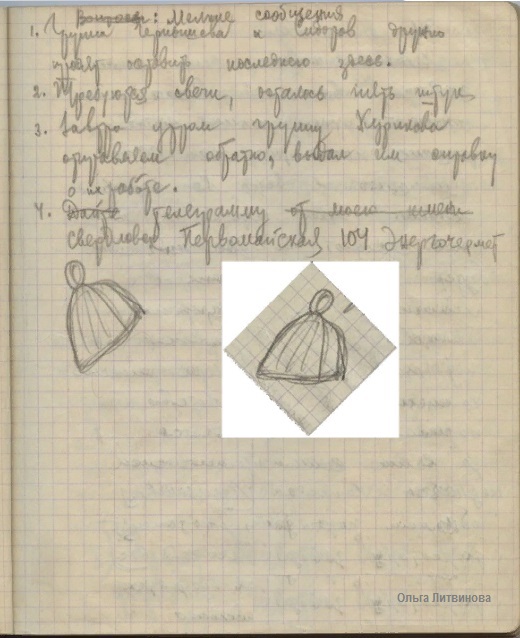 Вопросы: Мелкие сообщения
1. Группа Чернышева и Сидоров дружно
просят оставить последнего здесь.
2. Требуются свечи, осталось пять штук
3. Завтра утром группу Курикова
отправляем обратно, выдал им справку
о работе.
4. Дайте телеграмму от моего имени
Свердловск, Первомайская 104 Энергочермет
Ольга Литвинова